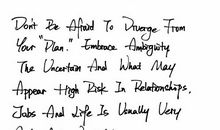 Don't Be Afraid To Diverge From
Your "Plan." Embrace Ambiguity
The Uncertain And What May
Appear High Risk In Relationships,
Jobs And Life Is Usually Very